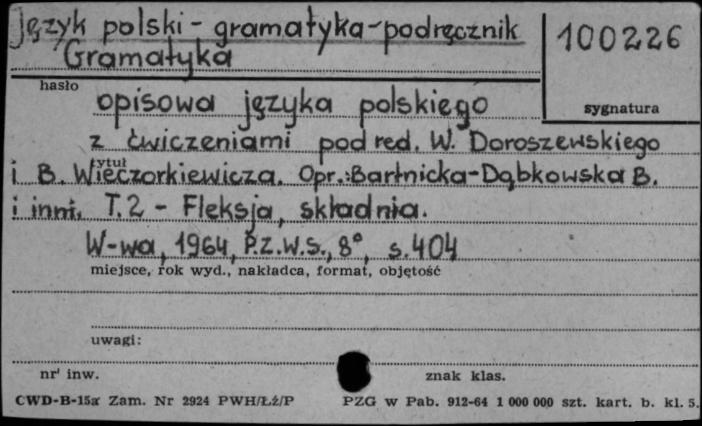 Język polski - gramatyka - podręcznik
Gramatyka
100226
hasło
sygnatura
opisowa języka polskiego
z ćwiczeniami pod red. W. Doroszewskiego
tytuł
i B. Wieczorkiewicza. Opr.: Bartnicka-Dąbkowska B.
i inni. T.2 - Fleksja, składnia.
W-wa, 1964, P.Z.W.S., 8°, s. 404
miejsce, rok wyd., nakładca, format, objętość
uwagi:
nr inw.
znak klas.
CWD-B-15a Zam. Nr 2924 PWH/Łź/P PZG w Pab. 912-64 1 000 000 szt. kart. b. kl. 5.